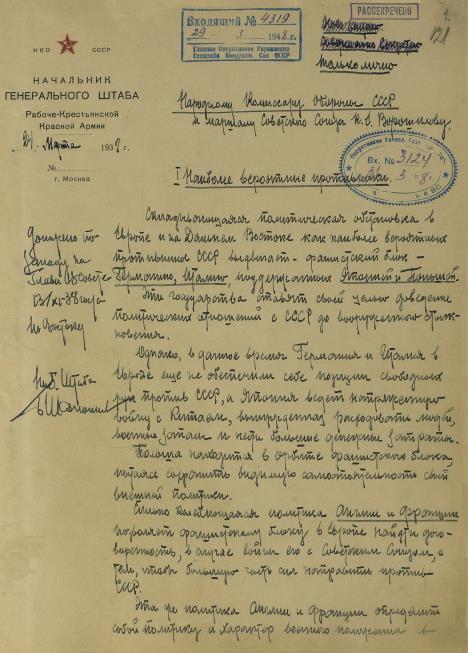 РАССЕКРЕЧЕНО
1.
121
Входящий № 4319
"29" - 3 1948 г.
Главное Оперативное Управление
Генштаба Вооружен. Сил СССР
Только лично
НКО СССР
НАЧАЛЬНИК
ГЕНЕРАЛЬНОГО ШТАБА
Рабоче-Крестьянской
Красной Армии
24 марта 1938 г.
№
г. Москва
Народному Комиссару обороны СССР
маршалу Советского Союза К. Е. Ворошилову.
Вх. № 3124
I Наиболее вероятные противники.
Складывающаяся политическая обстановка в
Европе и на Дальнем Востоке как наиболее вероятных
противников СССР выдвигает - фашистский блок -
Германию, Италию, поддержанных Японией и Польшей.
Эти государства ставят своей целью доведение
политических отношений с СССР до вооруженного столк-
новения.
Однако, в данное время Германия и Италия в
Европе еще не обеспечили себе позиции свободных
рук против СССР, а Япония ведет напряженную
войну с Китаем, вынужденная расходовать людей,
военные запасы и нести большие денежные затраты.
Польша находится в орбите фашистского блока,
пытаясь сохранить видимую самостоятельность своей
внешней политики.
Сильно колеблющаяся политика Англии и Франции
позволяет фашистскому блоку в Европе найти дого-
воренность, в случае войны его с Советским Союзом, с
тем, чтобы большую часть сил направить против
СССР.
Эта же политика Англии и Франции определит
собой политику и характер военного положения в
Доложено по
Западу на
Главн. В. Совете